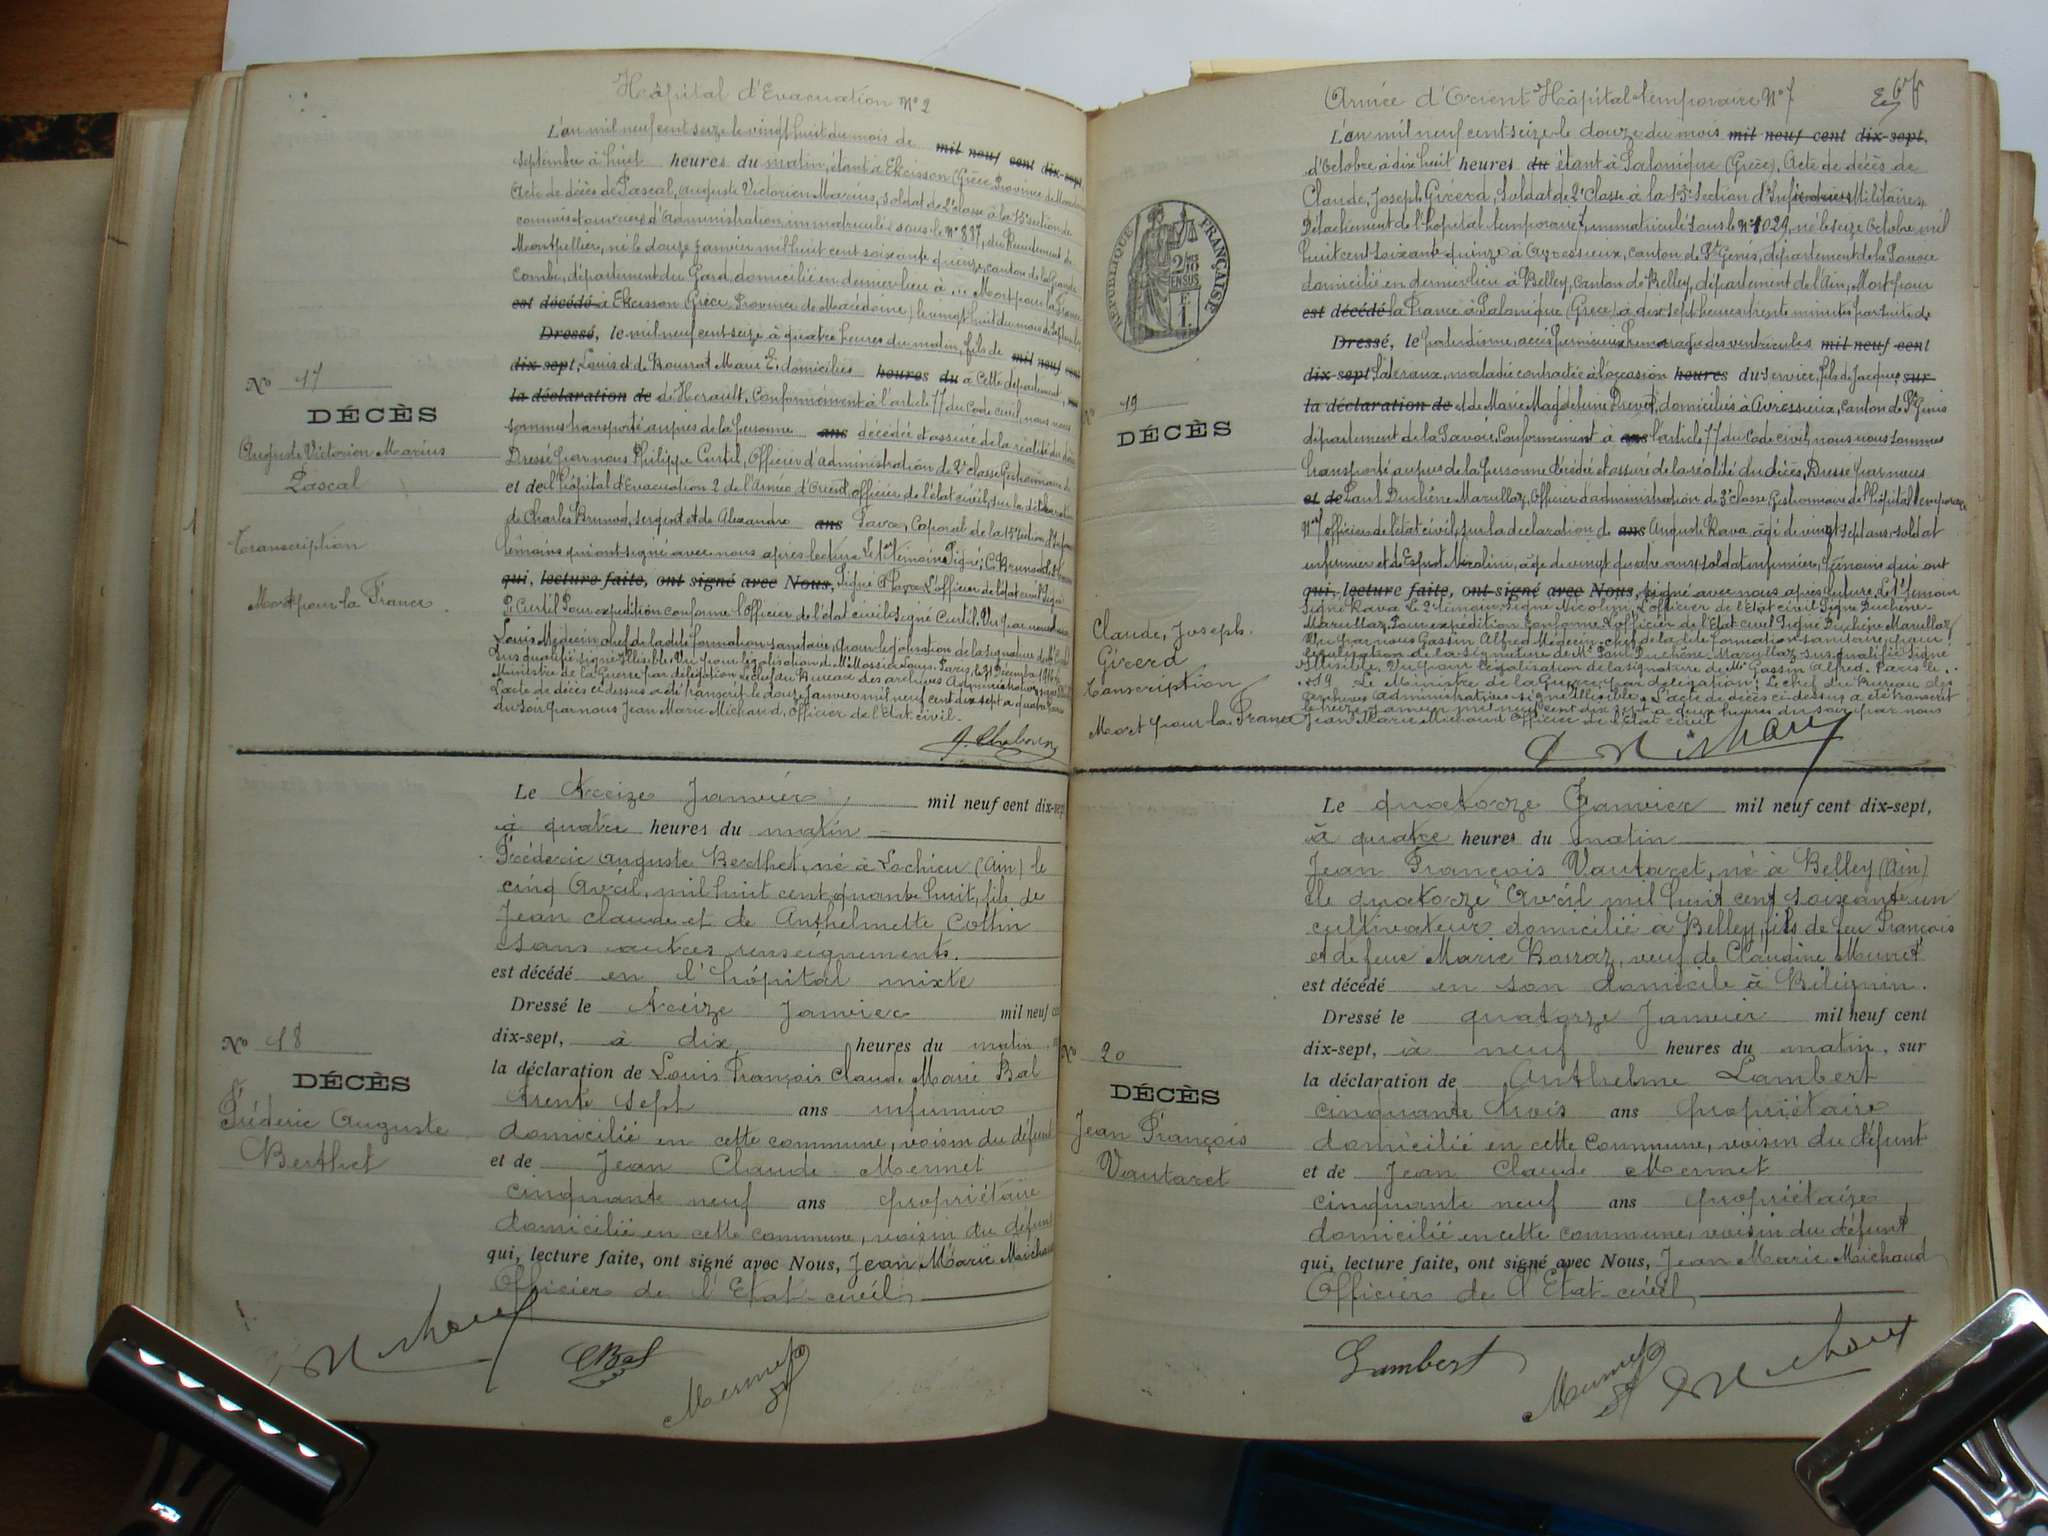 Hôpital d'Evacuation N° 2
L'an mil neuf cent seize le vingt huit du mois de mil neuf cent dix-sept
septembre à huit heures du matin, étant à Ekcisson (Grèce Province de
Acte de décès de Pascal, Auguste Victorien Marius, soldat de 2e classe à la 15e section de
commis et ouvriers d'Administration, immatriculé sous le N° 837, du Recrutement de
Montpellier, né le douze janvier mil huit cent soixante quinze, canton de la Grande
Combe, département du Gard, domicilié en dernier lieu à ... Mort pour la France
est décédé à Ekcisson (Grèce Province de Macédoine) le vingt huit du mois de
Dressé, le mil neuf cent seize à quatre heures du matin, fils de mil neuf cent
dix-sept, Louis et de Marie E. domiciliés heures du à Cette département,
la déclaration de de Herault. Conformément à l'article 77 du Code civil, nous nous
sommes transporté auprès de la personne ans décédée et assuré de la réalité du décès
Dressé par nous Philippe Curtil, Officier d'administration de 2e classe Gestionnaire de
et de l'hôpital d'Evacuation 2 de l'Armée d'Orient, officier de l'état civil, sur la déclaration
de Charles Brunod, sergent et de Alexandre ans Pava, Caporal de la 15e section
témoins qui ont signé avec nous après lecture Le 1er témoin Signé: C. Brunod,
qui, lecture faite, ont signé avec Nous, Signé A Pava L'officier de l'état civil Signé
P. Curtil Pour expédition conforme l'officier de l'état civil signé Curtil. Vu par nous
Louis Médecin chef de la dite formation sanitaire, pour légalisation de la signature de
sus qualifié signé Illisible. Vu pour légalisation de Mr Louis. Paris, le 31 Décembre 1916
Ministre de la Guerre par délégation le chef du Bureau des archives Administratives
L'acte de décès ci-dessus a été transcrit le douze Janvier mil neuf cent dix sept à quatre heures
du soir par nous Jean Marie Michaud, Officier de l'Etat civil.
N° 17
DÉCÈS
Auguste Victorien Marius
Pascal
Transcription
Mort pour la France
Le treize Janvier, mil neuf cent dix-sept
à quatre heures du matin
Fréderic Auguste Berthet, né à Lochieu (Ain) le
cinq Avril, mil huit cent quarante huit, fils de
Jean Claude et de Anthelmette Cottin
sans autres renseignements.
est décédé en l'hôpital mixte
Dressé le treize Janvier mil neuf cent
dix-sept, à dix heures du matin
la déclaration de Louis François Claude Marie Bal
trente sept ans infirmier
domicilié en cette commune, voisin du défunt
et de Jean Claude Mermet
cinquante neuf ans propriétaire
domicilié en cette commune, voisin du défunt
qui, lecture faite, ont signé avec Nous, Jean Marie Michaud
Officier de l'Etat-civil,
N° 18
DÉCÈS
Fréderic Auguste
Berthet
Michaud
Bal
Mermet
Armée d'Orient Hôpital temporaire N° 7
L'an mil neuf cent seize le douze du mois mil neuf cent dix-sept.
d'Octobre à dix huit heures du étant à Salonique (Grèce). Acte de décès de
Claude, Joseph Girerd, Soldat de 2e Classe à la 15e Section d'Infirmiers Militaires,
Détachement de l'hôpital temporaire 7, immatriculé sous le N° 1029, né le seize Octobre mil
huit cent soixante quinze à Avressieux, canton de St Genis, département de la Savoie
domicilié en dernier lieu à Belley, Canton de Belley, département de l'Ain, Mort pour
est décédé la France à Salonique (Grèce) à dix sept heures trente minutes par suite de
Dressé, le paludisme, accès pernicieux des ventricules mil neuf cent
dix-sept latéraux, maladie contractée à l'occasion heures du service, fils de Jacques, sur
la déclaration de et de Marie Magdeleine Drevet, domiciliés à Avressieux, canton de St Genis
département de la Savoie. Conformément à ans l'article 77 du Code civil, nous nous sommes
transporté auprès de la personne décédée et assuré de la réalité du décès, Dressé par nous
et de Paul Duchêne Marullaz, Officier d'administration de 3e classe, Gestionnaire de l'hôpital temporaire
N° 7 officier de l'état civil, sur la déclaration de ans Auguste Rava, âgé de vingt sept ans, soldat
infirmier et de Nicolini, âgé de vingt quatre ans, soldat infirmier, témoins qui ont
qui, lecture faite, ont signé avec Nous, signé avec nous après lecture, Le 1er témoin
Signé Rava Le 2e témoin, signé Nicolini, L'officier de l'Etat civil Signé Duchêne-
Marullaz, Pour expédition conforme L'officier de l'Etat civil Signé Duchêne Marullaz
Vu par nous Gassin Alfred Médecin-chef de la dite formation sanitaire, pour
légalisation de la signature de Mr Paul Duchêne Marullaz sus qualifié signé
Illisible. Vu pour légalisation de la signature de Mr Gassin Alfred. Paris le ..
Le Ministre de la Guerre, par délégation, Le chef du Bureau des
Archives Administratives signé Illisible. L'acte de décès ci-dessus a été transcrit
le treize Janvier mil neuf cent dix sept à deux heures du soir par nous
Jean Marie Michaud Officier de l'état civil
Michaud
RÉPUBLIQUE FRANÇAISE
N° 19
DÉCÈS
Claude, Joseph.
Girerd
Transcription
Mort pour la France
Le quatorze Janvier mil neuf cent dix-sept,
à quatre heures du matin
Jean François Vautaret, né à Belley (Ain)
le quatorze Avril mil huit cent soixante un
cultivateur domicilié à Belley, fils de feu François
et de feue Marie Barraz, veuf de Claudine Munet
est décédé en son domicile à Bilignin.
Dressé le quatorze Janvier mil neuf cent
dix-sept, à neuf heures du matin, sur
la déclaration de Anthelme Lambert
cinquante trois ans propriétaire
domicilié en cette commune, voisin du défunt
et de Jean Claude Mermet
cinquante neuf ans propriétaire,
domicilié en cette commune, voisin du défunt
qui, lecture faite, ont signé avec Nous, Jean Marie Michaud
Officier de l'Etat-civil,
N° 20
DÉCÈS
Jean François
Vautaret
Lambert
Mermet
Michaud